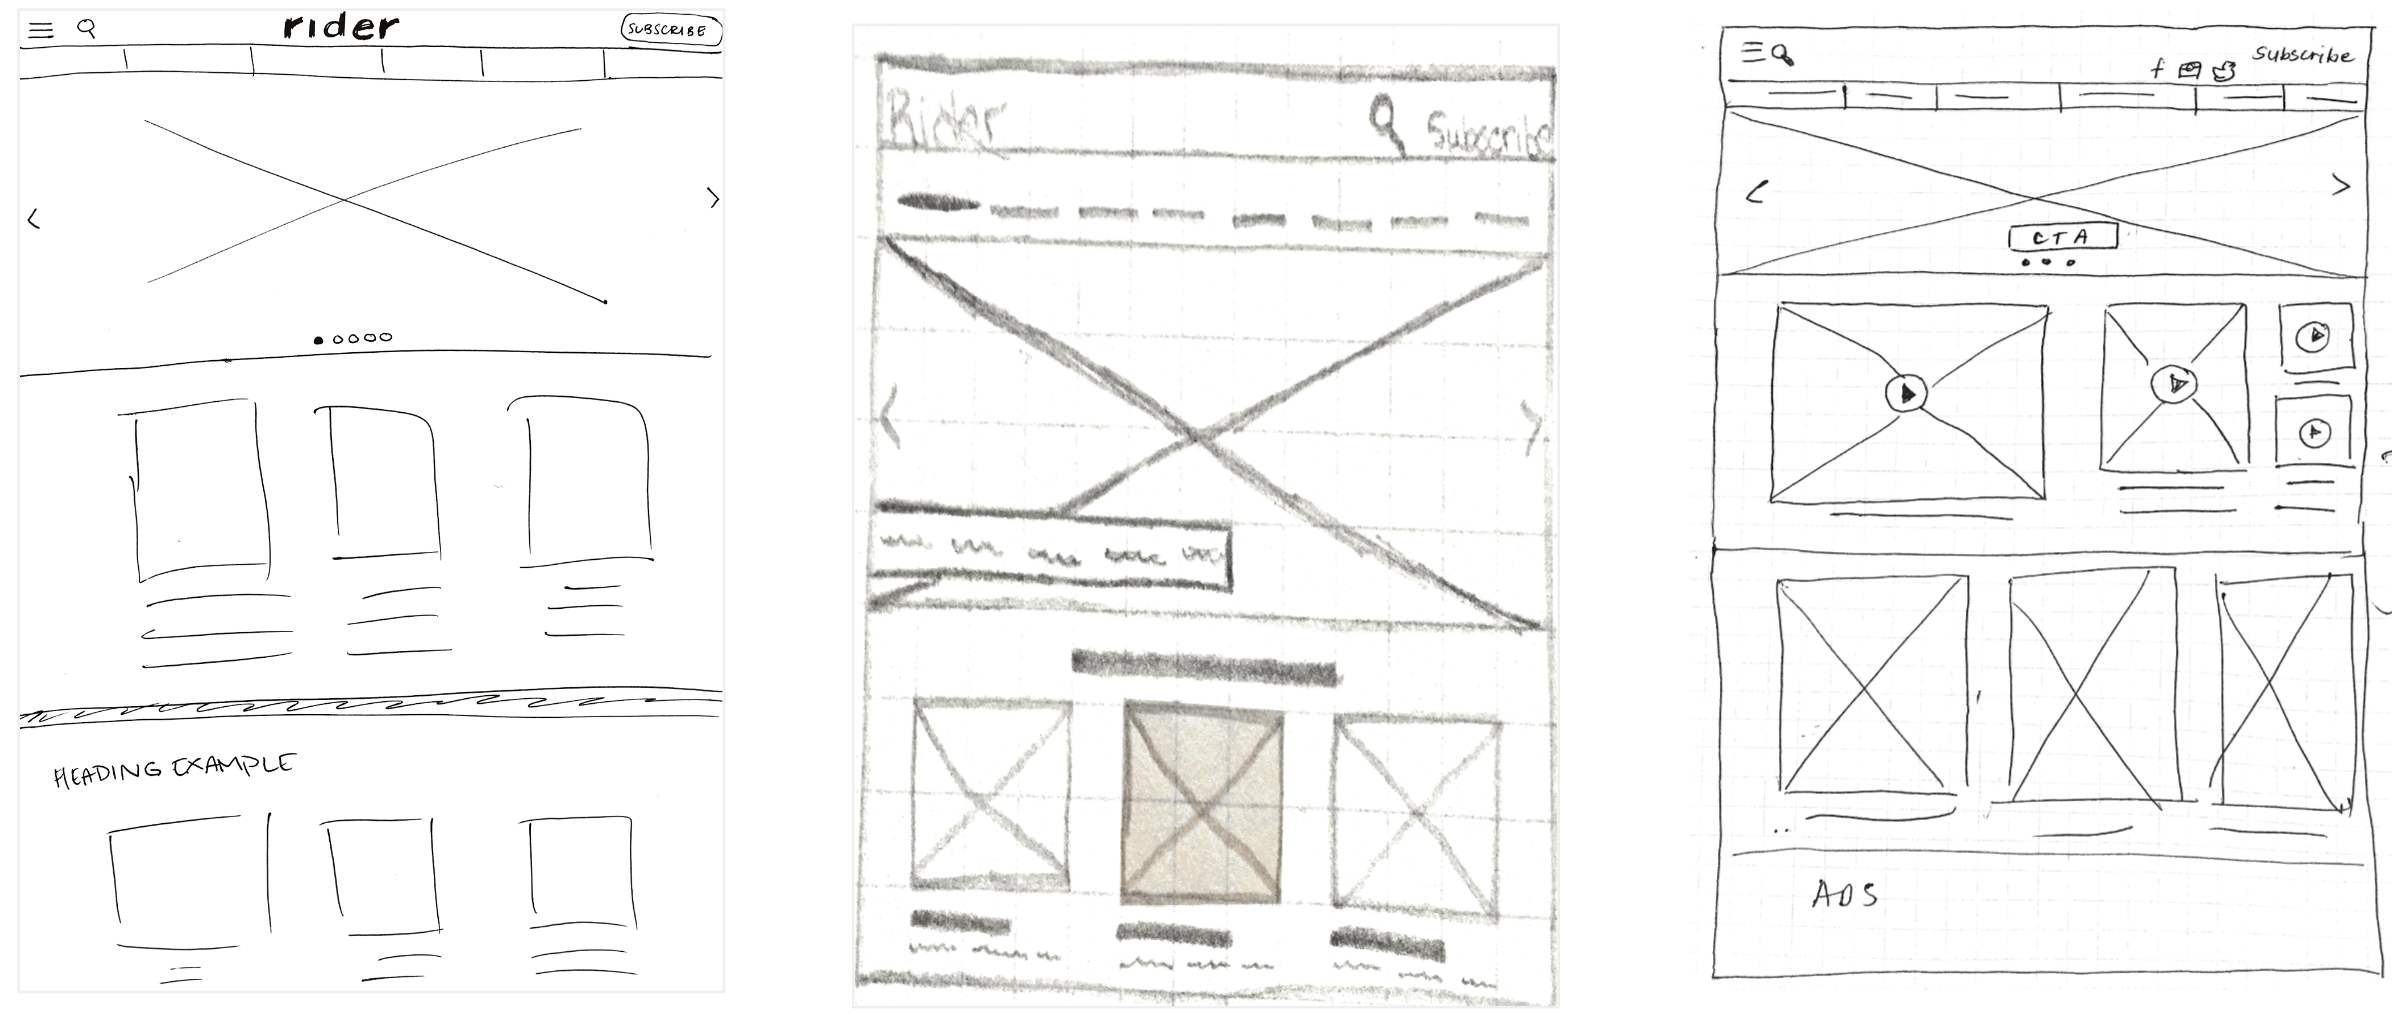 rider
SUBSCRIBE
HEADING EXAMPLE
Rider
Subscribe
f
Subscribe
CTA
ADS